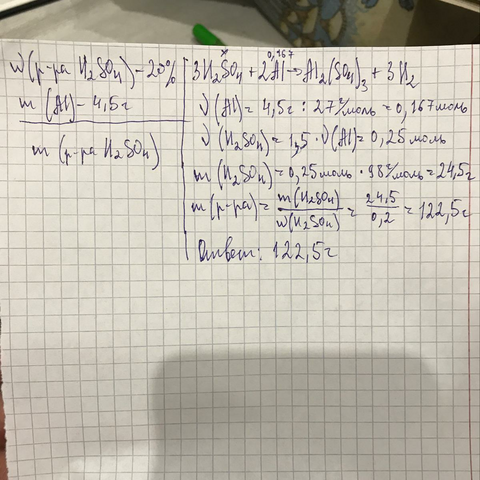 w(р-ра H₂SO₄) - 20%
m (Al) - 4,5г
m (р-ра H₂SO₄)
x 0,167
3H₂SO₄ + 2Al → Al₂(SO₄)₃ + 3H₂
ν(Al) = 4,5г : 27г/моль = 0,167моль
ν(H₂SO₄) = 1,5 · ν(Al) = 0,25 моль
m(H₂SO₄) = 0,25моль · 98г/моль = 24,5г
m(р-ра) = m(H₂SO₄) / w(H₂SO₄) = 24,5 / 0,2 = 122,5г
Ответ: 122,5г